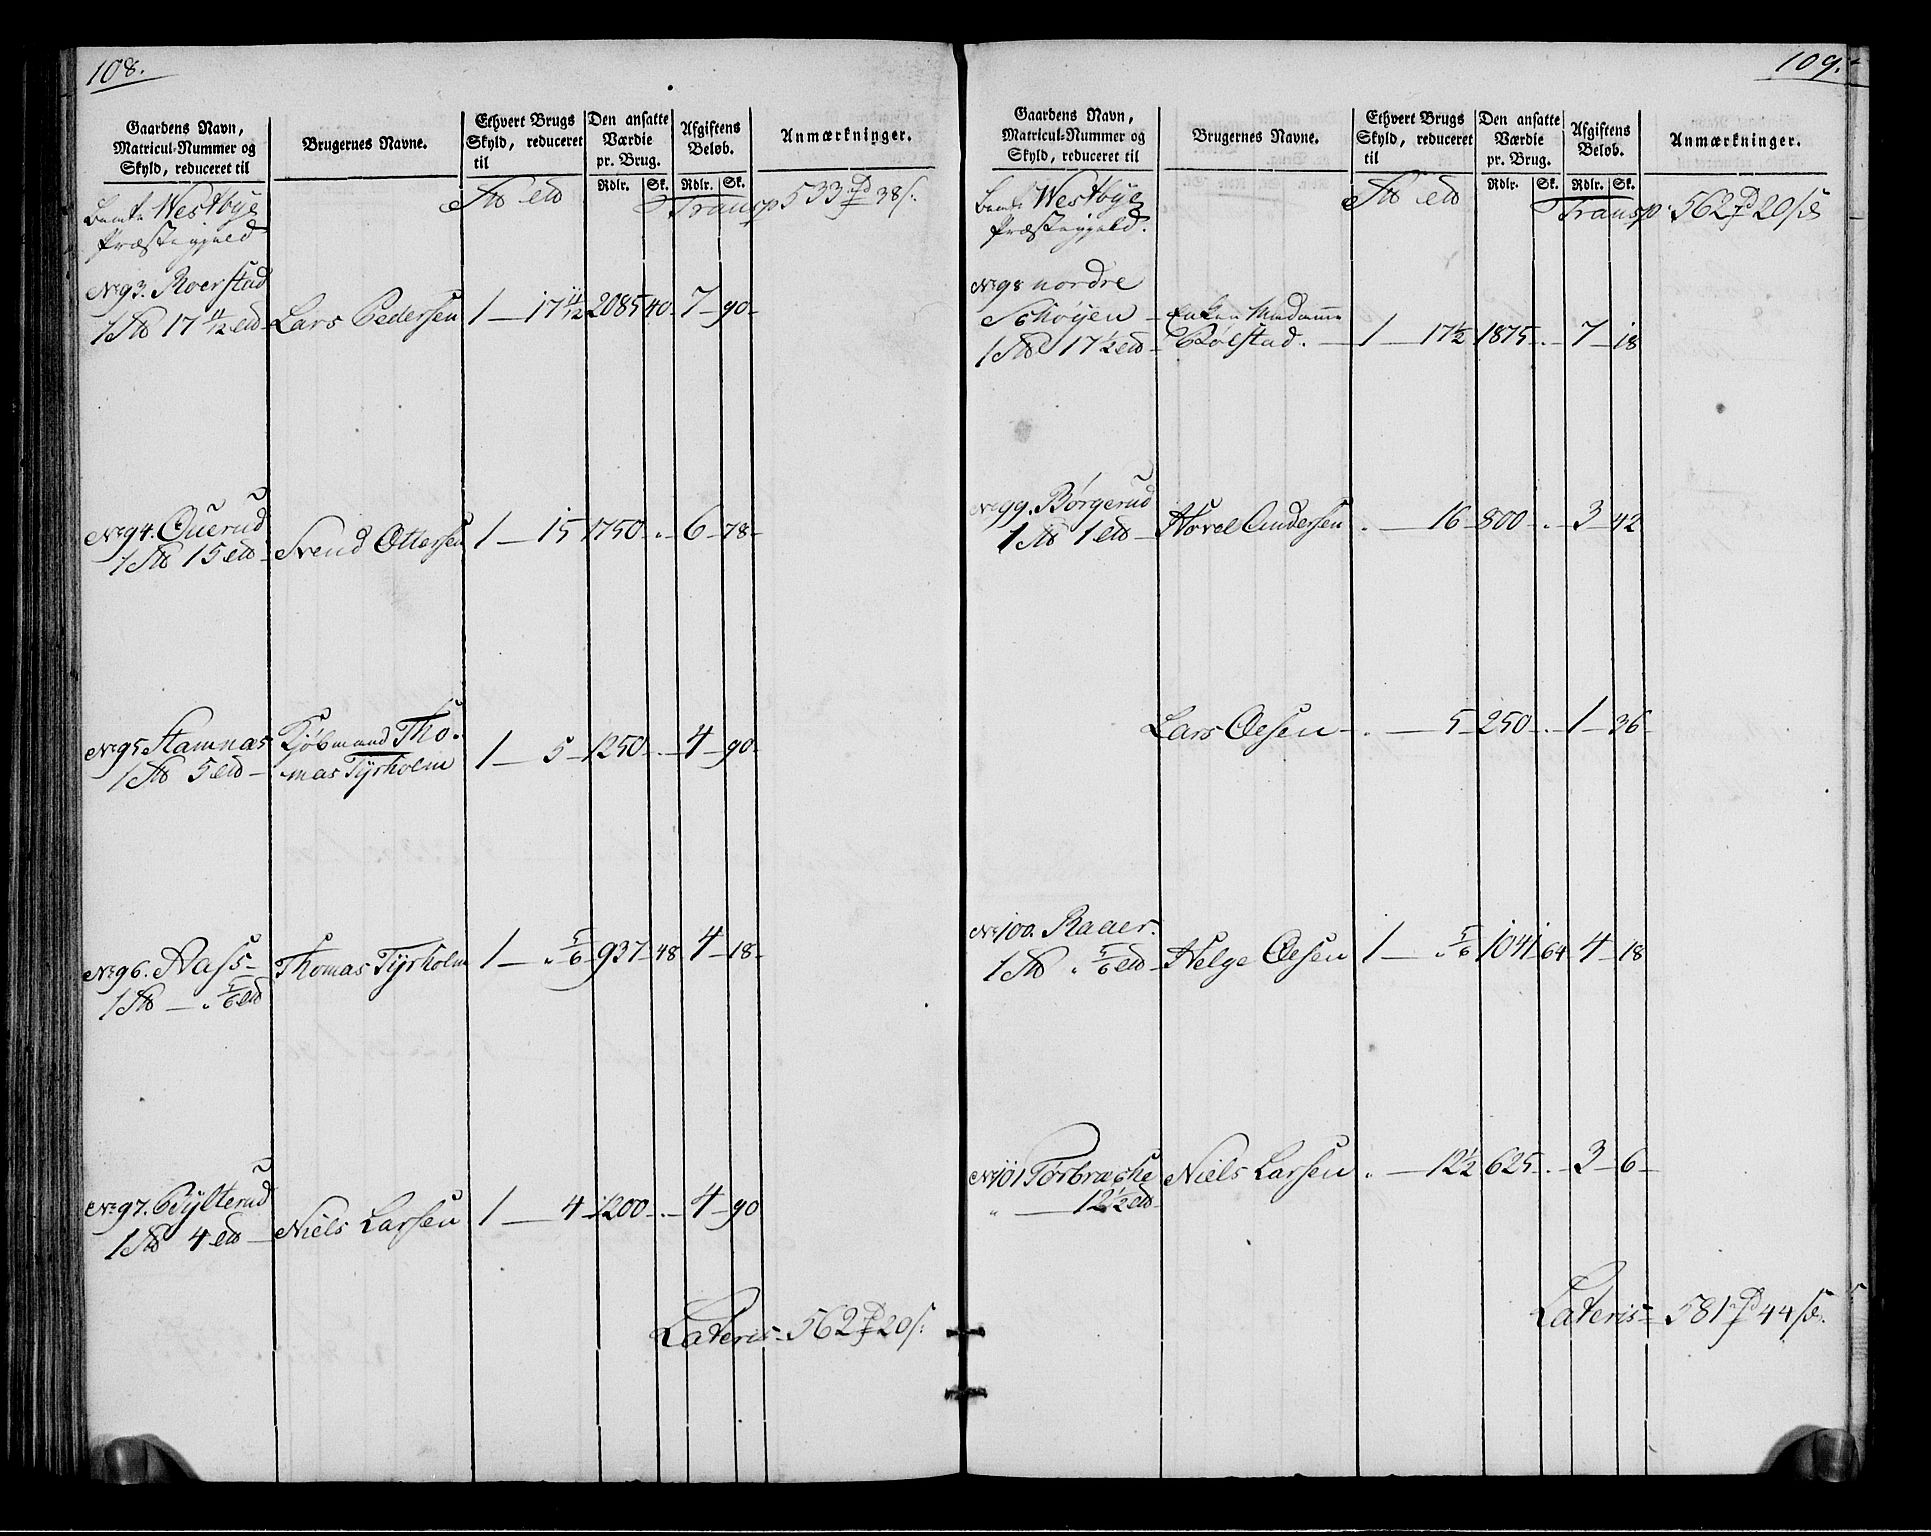 108.
Gaardens Navn,
Matricul-Nummer og
Skyld, reduceret til
Brugernes Navne.
Ethvert Brugs
Skyld, reduceret
til
Den ansatte
Værdie
pr. Brug.
Rdlr. Sk.
Afgiftens
Beløb.
Rdlr. Sk.
Anmærkninger.
Westbye
Præstegjeld
Transp 533 38
No 93. Roerstad
1 17 11/12
Lars Pedersen 1 — 17 11/12 2085 40 7 — 90
No 94. Querud
1 15
Svend Ottersen 1 — 15 1750 . 6 — 78
No 95 Stamnæs
1 5
Kjøbmand Tho-
mas Tyrholm 1 — 5 1250 . 4 — 90
No 96. Aass
1 — „ 5/6
Thomas Tyrholm 1 — „ 5/6 937 48 4 — 18
No 97. Bylterud
1 4
Niels Larsen 1 — 4 1200 . 4 — 90
Lateris 562 20
109.
Gaardens Navn,
Matricul-Nummer og
Skyld, reduceret til
Brugernes Navne.
Ethvert Brugs
Skyld, reduceret
til
Den ansatte
Værdie
pr. Brug.
Rdlr. Sk.
Afgiftens
Beløb.
Rdlr. Sk.
Anmærkninger.
Westbye
Præstegjeld.
Transp. 562 20
No 98 nordre
Schøyen
1 17 1/2
Enken Madamme
Rølstad. 1 — 17 1/2 1875 . 7 — 18
No 99. Børgerud
1 1
Hovel Andersen . — 16 800 . 3 — 42
Lars Olsen . — 5 250 . 1 — 36
No 100. Raaer.
1 „ 5/6
Helge Olsen 1 — „ 5/6 1041 64 4 — 18
No 101 Torbrache
„ — 12 1/2
Niels Larsen „ — 12 1/2 625 . 3 — 6
Lateris 581 44